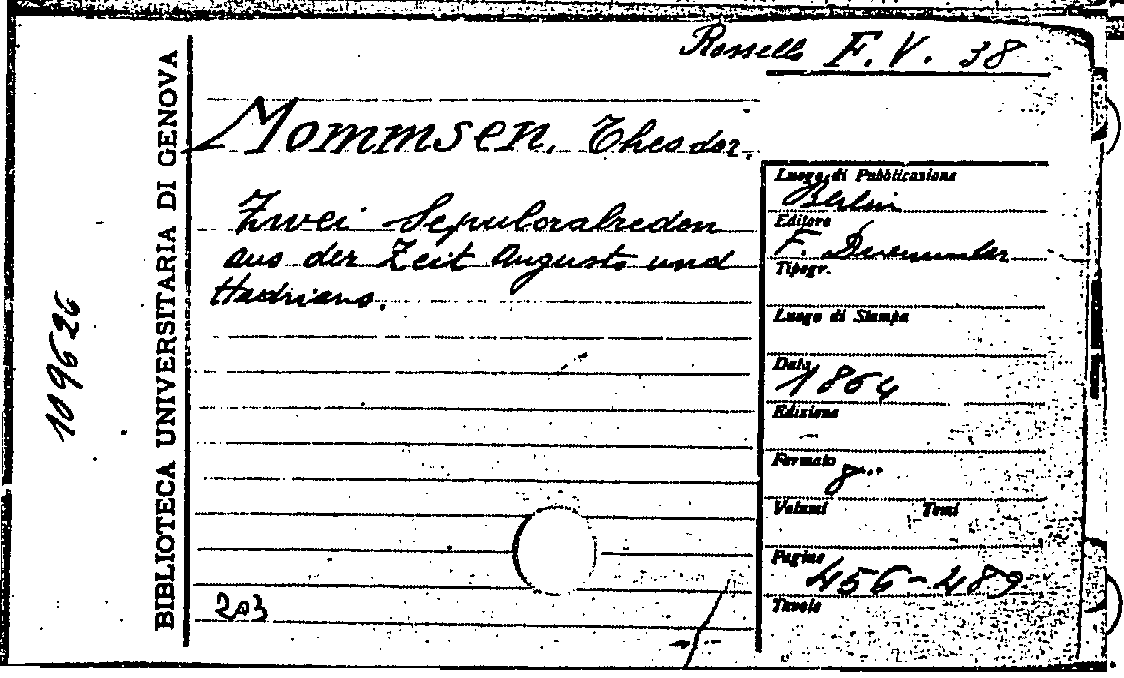 Rossello F. V. 38
Mommsen, Theodor.
Zwei Sepulcralreden
aus der Zeit Augusts und
Hadrians.
203
109626
BIBLIOTECA UNIVERSITARIA DI GENOVA
Luogo di Pubblicazione
Berlin
Editore
F. Duemmler
Tipogr.
Luogo di Stampa
Data
1864
Edizione
Formato
8°
Volumi Tomi
Pagine
456-489
Tavole